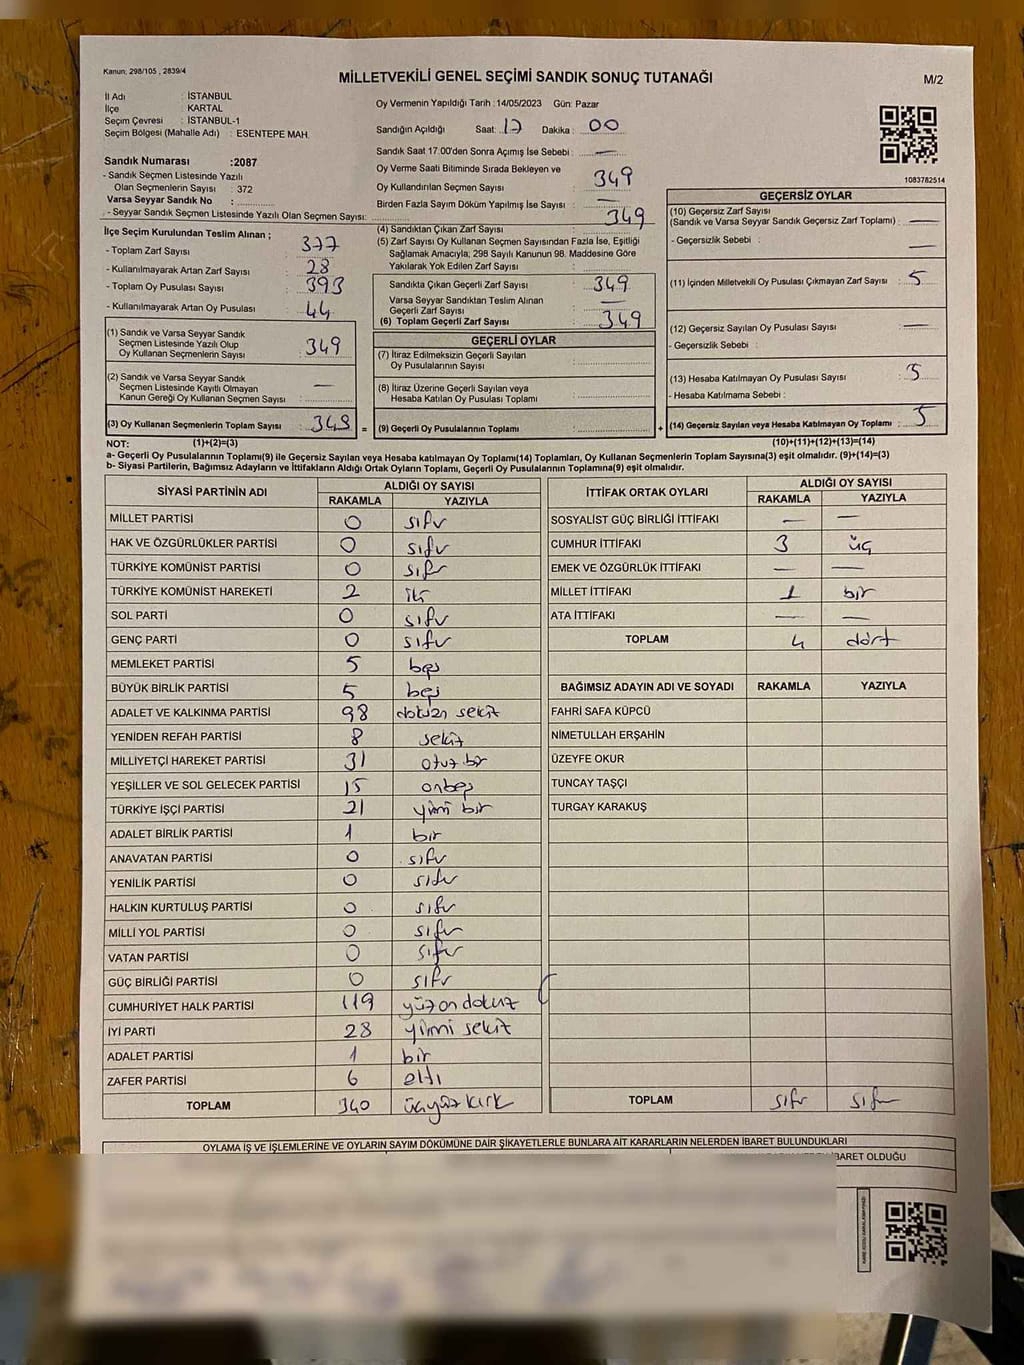 Kanun; 298/105 , 2839/4
MİLLETVEKİLİ GENEL SEÇİMİ SANDIK SONUÇ TUTANAĞI
M/2
İl Adı : İSTANBUL
İlçe : KARTAL
Seçim Çevresi : İSTANBUL-1
Seçim Bölgesi (Mahalle Adı) : ESENTEPE MAH.
Sandık Numarası :2087
- Sandık Seçmen Listesinde Yazılı
Olan Seçmenlerin Sayısı : 372
Varsa Seyyar Sandık No :
- Seyyar Sandık Seçmen Listesinde Yazılı Olan Seçmen Sayısı:
Oy Vermenin Yapıldığı Tarih :14/05/2023 Gün: Pazar
Sandığın Açıldığı Saat: 17 Dakika : 00
Sandık Saat 17.00'den Sonra Açımış İse Sebebi : —
Oy Verme Saati Bitiminde Sırada Bekleyen ve
Oy Kullandırılan Seçmen Sayısı : 349
Birden Fazla Sayım Döküm Yapılmış İse Sayısı : —
1083782514
İlçe Seçim Kurulundan Teslim Alınan ;
- Toplam Zarf Sayısı : 377
- Kullanılmayarak Artan Zarf Sayısı : 28
- Toplam Oy Pusulası Sayısı : 393
- Kullanılmayarak Artan Oy Pusulası : 44
(1) Sandık ve Varsa Seyyar Sandık
Seçmen Listesinde Yazılı Olup
Oy Kullanan Seçmenlerin Sayısı : 349
(2) Sandık ve Varsa Seyyar Sandık
Seçmen Listesinde Kayıtlı Olmayan
Kanun Gereği Oy Kullanan Seçmen Sayısı : —
(3) Oy Kullanan Seçmenlerin Toplam Sayısı : 349
(4) Sandıktan Çıkan Zarf Sayısı : 349
(5) Zarf Sayısı Oy Kullanan Seçmen Sayısından Fazla İse, Eşitliği
Sağlamak Amacıyla; 298 Sayılı Kanunun 98. Maddesine Göre
Yakılarak Yok Edilen Zarf Sayısı :
Sandıkta Çıkan Geçerli Zarf Sayısı : 349
Varsa Seyyar Sandıktan Teslim Alınan
Geçerli Zarf Sayısı : —
(6) Toplam Geçerli Zarf Sayısı : 349
GEÇERLİ OYLAR
(7) İtiraz Edilmeksizin Geçerli Sayılan
Oy Pusulalarının Sayısı :
(8) İtiraz Üzerine Geçerli Sayılan veya
Hesaba Katılan Oy Pusulası Toplamı :
= (9) Geçerli Oy Pusulalarının Toplamı :
GEÇERSİZ OYLAR
(10) Geçersiz Zarf Sayısı
(Sandık ve Varsa Seyyar Sandık Geçersiz Zarf Toplamı) : —
- Geçersizlik Sebebi : —
(11) İçinden Milletvekili Oy Pusulası Çıkmayan Zarf Sayısı : 5
(12) Geçersiz Sayılan Oy Pusulası Sayısı : —
- Geçersizlik Sebebi :
(13) Hesaba Katılmayan Oy Pusulası Sayısı : 5
- Hesaba Katılmama Sebebi :
+ (14) Geçersiz Sayılan veya Hesaba Katılmayan Oy Toplamı : 5
NOT: (1)+(2)=(3) (10)+(11)+(12)+(13)=(14)
a- Geçerli Oy Pusulalarının Toplamı(9) ile Geçersiz Sayılan veya Hesaba katılmayan Oy Toplamı(14) Toplamları, Oy Kullanan Seçmenlerin Toplam Sayısına(3) eşit olmalıdır. (9)+(14)=(3)
b- Siyasi Partilerin, Bağımsız Adayların ve İttifakların Aldığı Ortak Oyların Toplamı, Geçerli Oy Pusulalarının Toplamına(9) eşit olmalıdır.
SİYASİ PARTİNİN ADI ALDIĞI OY SAYISI
RAKAMLA YAZIYLA
MİLLET PARTİSİ 0 sıfır
HAK VE ÖZGÜRLÜKLER PARTİSİ 0 sıfır
TÜRKİYE KOMÜNİST PARTİSİ 0 sıfır
TÜRKİYE KOMÜNİST HAREKETİ 2 iki
SOL PARTİ 0 sıfır
GENÇ PARTİ 0 sıfır
MEMLEKET PARTİSİ 5 beş
BÜYÜK BİRLİK PARTİSİ 5 beş
ADALET VE KALKINMA PARTİSİ 98 doksan sekiz
YENİDEN REFAH PARTİSİ 8 sekiz
MİLLİYETÇİ HAREKET PARTİSİ 31 otuz bir
YEŞİLLER VE SOL GELECEK PARTİSİ 15 onbeş
TÜRKİYE İŞÇİ PARTİSİ 21 yirmi bir
ADALET BİRLİK PARTİSİ 1 bir
ANAVATAN PARTİSİ 0 sıfır
YENİLİK PARTİSİ 0 sıfır
HALKIN KURTULUŞ PARTİSİ 0 sıfır
MİLLİ YOL PARTİSİ 0 sıfır
VATAN PARTİSİ 0 sıfır
GÜÇ BİRLİĞİ PARTİSİ 0 sıfır
CUMHURİYET HALK PARTİSİ 119 yüz on dokuz
İYİ PARTİ 28 yirmi sekiz
ADALET PARTİSİ 1 bir
ZAFER PARTİSİ 6 altı
TOPLAM 340 üçyüz kırk
İTTİFAK ORTAK OYLARI ALDIĞI OY SAYISI
RAKAMLA YAZIYLA
SOSYALİST GÜÇ BİRLİĞİ İTTİFAKI — —
CUMHUR İTTİFAKI 3 üç
EMEK VE ÖZGÜRLÜK İTTİFAKI — —
MİLLET İTTİFAKI 1 bir
ATA İTTİFAKI — —
TOPLAM 4 dört
BAĞIMSIZ ADAYIN ADI VE SOYADI RAKAMLA YAZIYLA
FAHRİ SAFA KÜPCÜ
NİMETULLAH ERŞAHİN
ÜZEYFE OKUR
TUNCAY TAŞÇI
TURGAY KARAKUŞ
TOPLAM sıfır sıfır
OYLAMA İŞ VE İŞLEMLERİNE VE OYLARIN SAYIM DÖKÜMÜNE DAİR ŞİKAYETLERLE BUNLARA AİT KARARLARIN NELERDEN İBARET BULUNDUKLARI
İBARET OLDUĞU